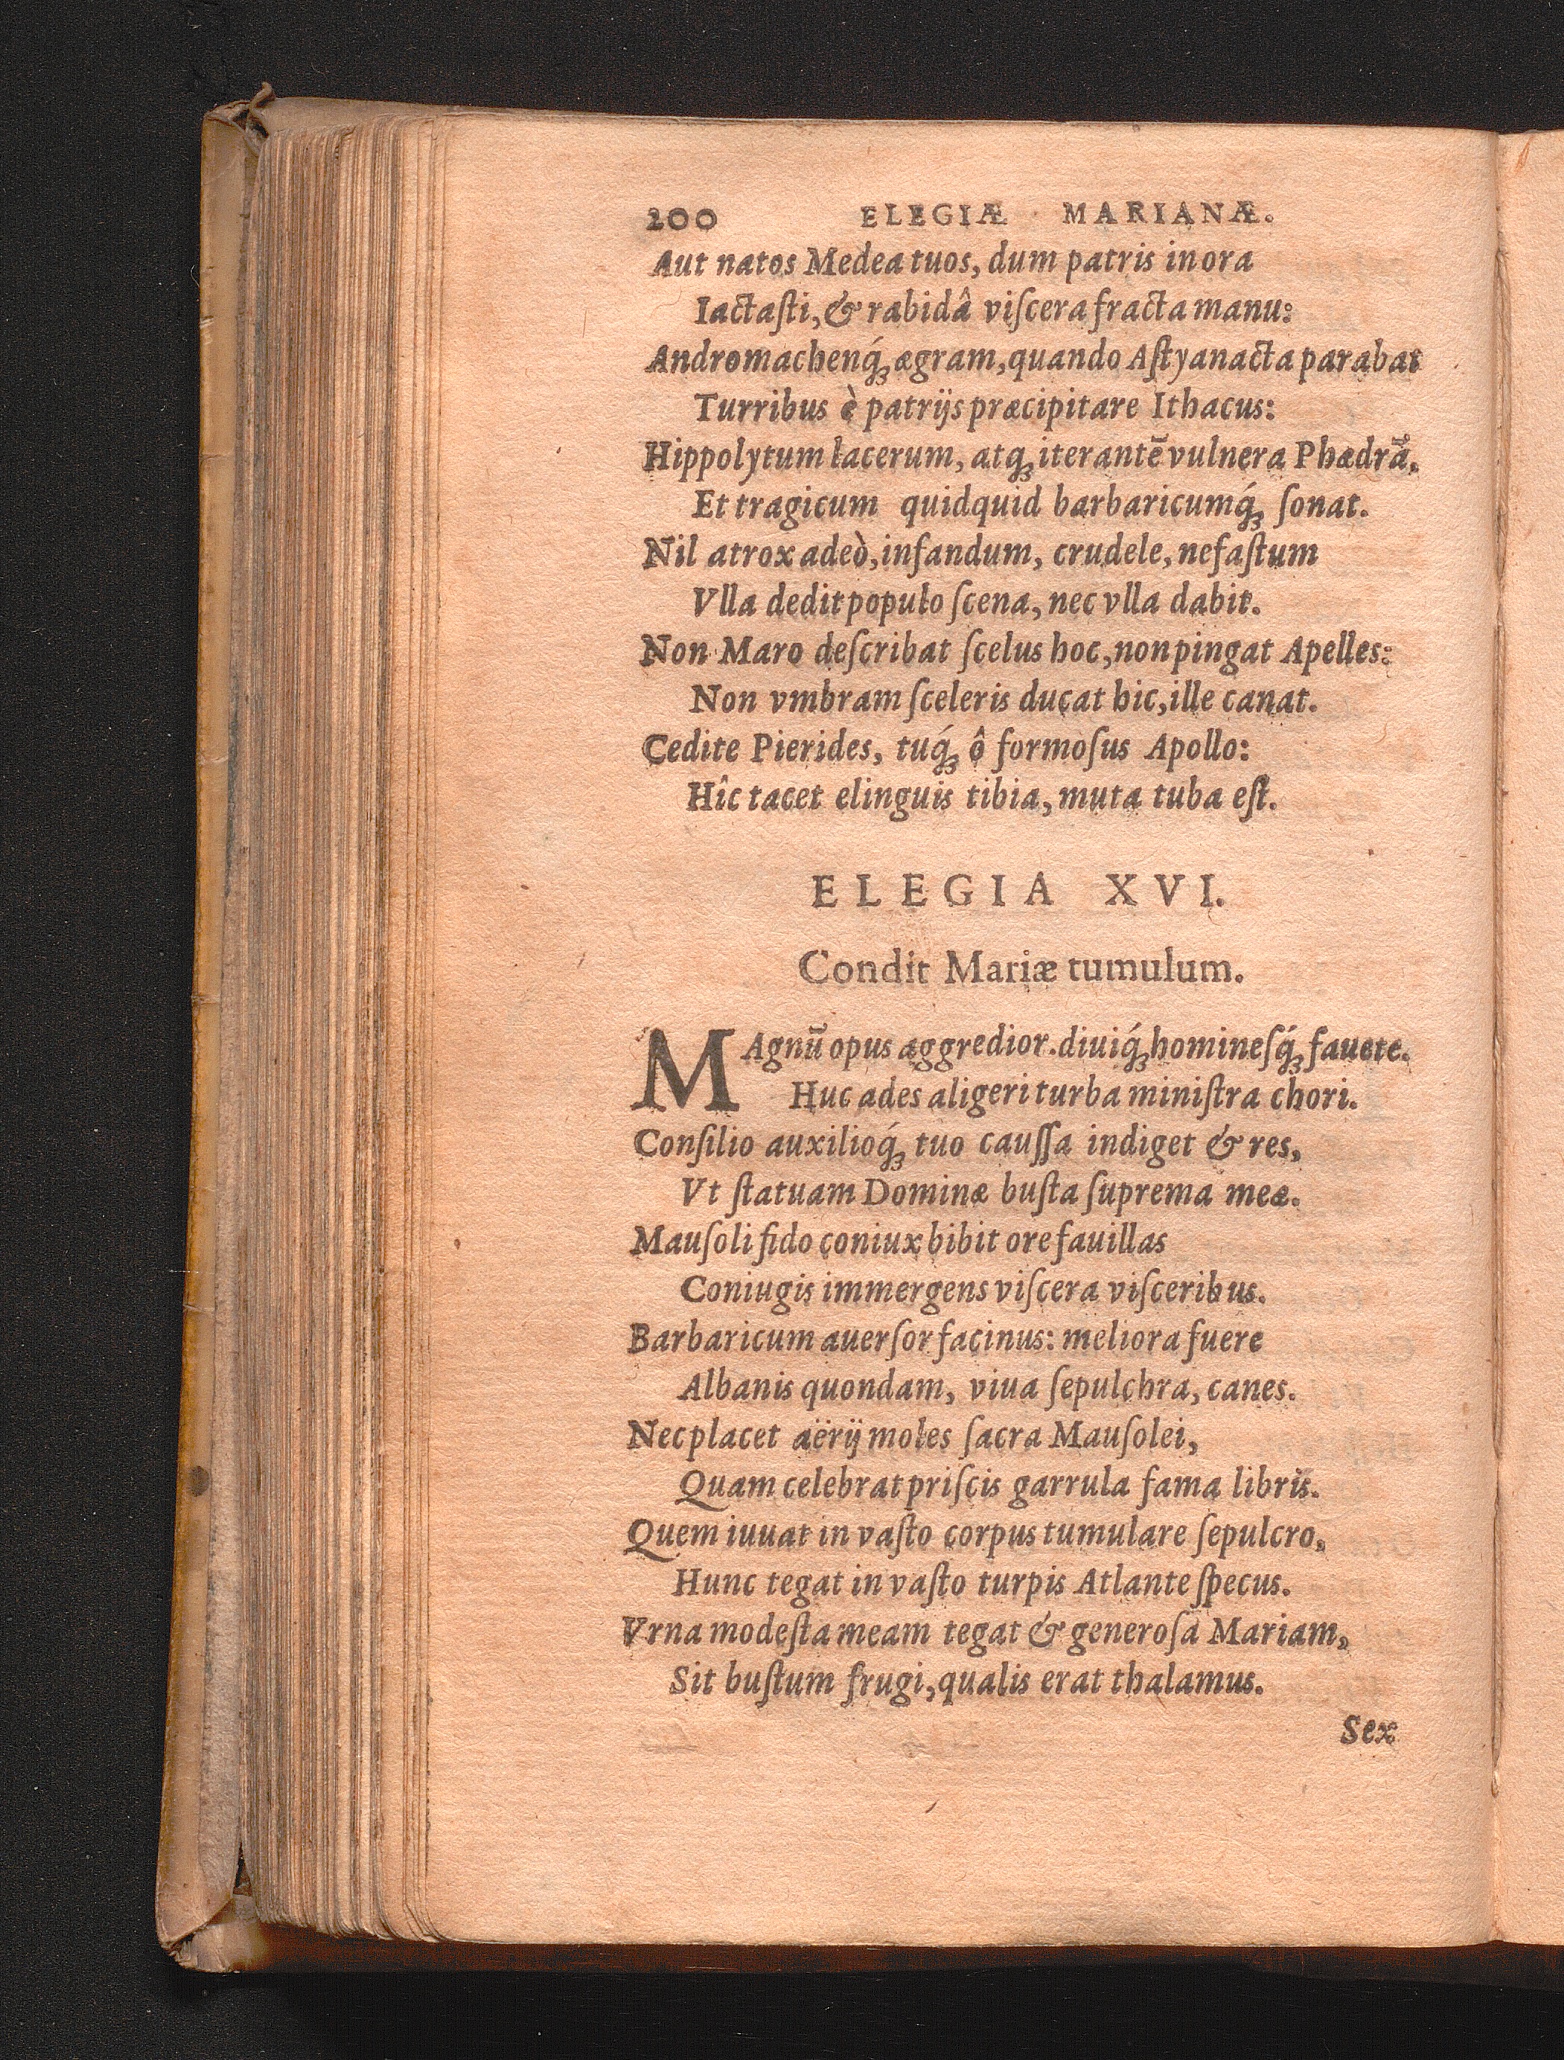 200 ELEGIÆ MARIANÆ.
Aut natos Medea tuos, dum patris in ora
Iactaſti, & rabidâ viſcera fracta manu:
Andromachenq́ꝫ ægram, quando Aſtyanacta parabat
Turribus è patrijs præcipitare Ithacus:
Hippolytum lacerum, atqꝫ iterantẽ vulnera Phædrã,
Et tragicum quidquid barbaricumq́ꝫ ſonat.
Nil atrox adeò, infandum, crudele, nefaſtum
Vlla dedit populo ſcena, nec vlla dabit.
Non Maro deſcribat ſcelus hoc, non pingat Apelles:
Non vmbram ſceleris ducat hic, ille canat.
Cedite Pierides, tuq́ꝫ ô formoſus Apollo:
Hîc tacet elinguis tibia, muta tuba eſt.
ELEGIA XVI.
Condit Mariæ tumulum.
MAgnũ opus aggredior. diuiq́ꝫ homineſq́ꝫ fauete.
Huc ades aligeri turba miniſtra chori.
Conſilio auxilioq́ꝫ tuo cauſſa indiget & res,
Vt ſtatuam Dominæ buſta ſuprema meæ.
Mauſoli fido coniux bibit ore fauillas
Coniugis immergens viſcera viſceribus.
Barbaricum auerſor facinus: meliora fuere
Albanis quondam, viua ſepulchra, canes.
Nec placet aërij moles ſacra Mauſolei,
Quam celebrat priſcis garrula fama libris.
Quem iuuat in vaſto corpus tumulare ſepulcro,
Hunc tegat in vaſto turpis Atlante ſpecus.
Vrna modeſta meam tegat & generoſa Mariam,
Sit buſtum frugi, qualis erat thalamus.
Sex